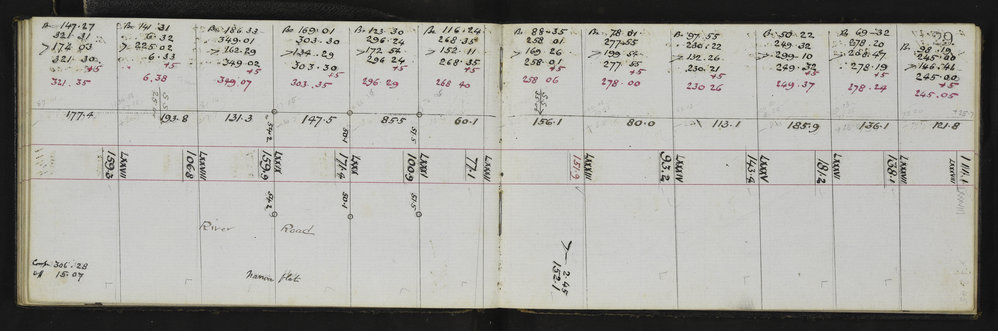 Bn 147.27
321.31
>174.03
321.30
+5
321.35
Bn 141.31
6.32
>225.02
6.33
+5
6.38
Bn 186.33
349.01
>162.29
349.02
+5
349.07
Bn 169.01
303.30
>134.29
303.30
+5
303.35
Bn 123.30
296.24
>172.54
296.24
+5
296.29
Bn 116.24
268.35
>152.11
268.35
+5
268.40
Bn 88.35
258.01
>169.26
258.01
+5
258.06
Bn 78.01
277.55
277.55
+5
278.00
Bn 97.55
230.22
>132.26
230.21
+5
230.26
Bn 50.22
249.32
>299.10
249.32
+5
249.37
Bn 69.32
278.20
278.19
+5
278.24
Bn 98.19
245.00
>146.41
245.00
+5
245.05
177.4
193.8
131.3
147.5
85.5
60.1
156.1
80.0
113.1
185.9
136.1
121.8
54.2
50.1
51.5
159.3
LXXVII
106.8
LXXVIII
159.9
LXXIX
171.4
LXXX
100.9
LXXXI
77.1
LXXXII
151.9
LXXXIII
93.2
LXXXIV
143.4
LXXXV
181.2
LXXXVI
138.1
LXXXVII
111.1
LXXXVIII
54.2
50.1
51.5
River Road
Comp 306.28
off 15.07
Narrow flat
2.45
152.1